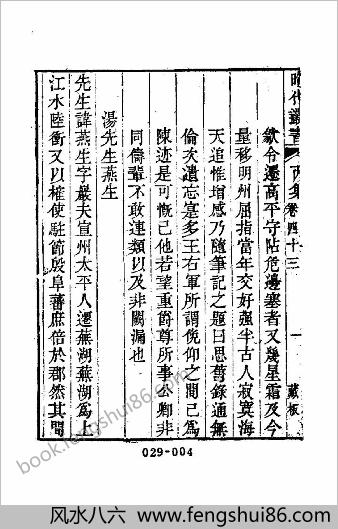 昭代叢書 丙集卷四十三 一 藏板
歙令遷高平守阽危邊塞者又幾星霜及今
量移明州屈指當年交好强半古人寂寞海
天追惟增感乃隨筆記之題曰思舊錄通無
倫次遺忘寔多王右軍所謂俛仰之間已為
陳迹是可慨已他若望重爵尊所事公卿非
同儔輩不敢連類以及非闕漏也
湯先生燕生
先生諱燕生字巖夫宣州太平人遷蕪湖蕪湖為上
江水陸衝又以榷使駐節殷阜蕃庶倍於郡然其間
029-004
book.fengshui86.com
风水八六 www.fengshui86.com